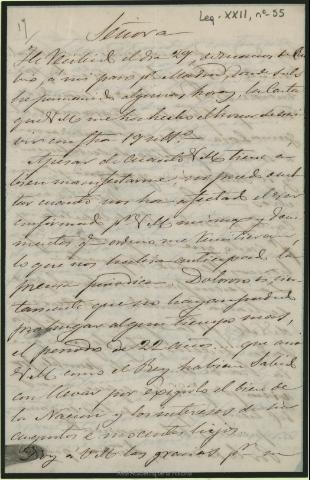 Leg. XXII, nº 55
Señora
He recibido el dia 29, de
á mi paso p.r Madrid donde solo
algunas horas, la carta
que V.M. me ha hecho el honor de escri
bir con fha 19
Apesar de cuanto V.M. tiene a
bien manifestarme, no puedo ocul
tar cuanto nos ha afectado el ver
confirmado p.r V.M. misma y docu
mentos q.e
lo que nos habia anticipado la
prensa periodica. Doloroso es, cier
tamente que no hayan podido
prolongar algun tiempo mas,
el periodo de 22 años, que asi
V.M. como el Rey, habian sabido
con llevar por exigirlo el bien de
la Nacion y los intereses de su
é inocentes hijos.
Doy a V.M. las gracias p.r